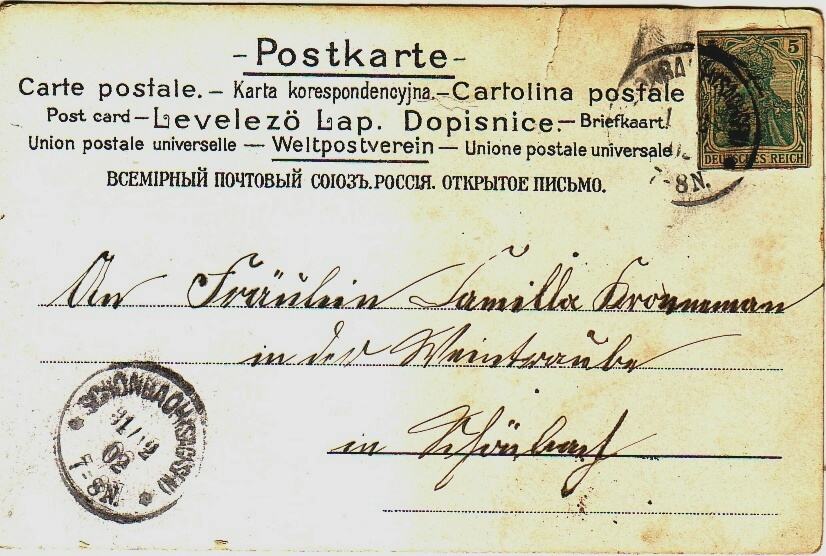 -Postkarte-
Carte postale.- Karta korespondencyjna.-Cartolina postale
Post card-Levelezö Lap. Dopisnice.-Briefkaart
Union postale universelle - Weltpostverein - Unione postale universale
ВСЕМІРНЫЙ ПОЧТОВЫЙ СОЮЗЪ.РОССІЯ. ОТКРЫТОЕ ПИСЬМО.
5
DEUTSCHES REICH
7-8N.
An Fräulein Camilla Kronneman
in der Weintraube
in Schönbach
SCHÖNBACH (SACHSEN)
31/12
02
7-8N.